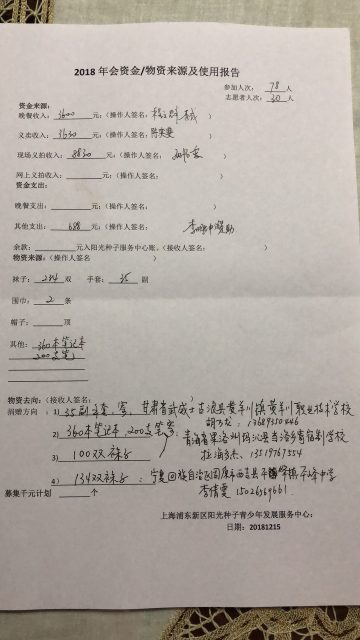 2018 年会资金/物资来源及使用报告
参加人次: 78 人
志愿者人次: 30 人
资金来源:
晚餐收入: 3600 元;(操作人签名:
义卖收入: 3630 元;(操作人签名:
现场义拍收入: 8830 元;(操作人签名: )
网上义拍收入: 元;(操作人签名: )
资金支出:
晚餐支出: 元;(操作人签名: )
其他支出: 688 元;(操作人签名: 赞助
余款: 元入阳光种子服务中心账。(接收人签名: )
物资来源:(操作人签名 )
袜子: 234 双 手套: 35 副
围巾: 2 条
帽子: 顶
其他: 360本笔记本
200支笔
物资去向:(接收人签名: )
捐赠方向: 1) 35副手套, 寄, 甘肃省武威士古浪县黄羊川镇黄羊川职业技术学校
2) 360本笔记本, 200支笔寄: 青海省果洛州玛沁县当洛乡寄宿制学校
3) 100双袜子 13519767554
4) 134双袜子: 宁夏回族自治区固原市西吉县平峰镇平峰中学
募集千元计划 个 李倩雯 15026569661
上海浦东新区阳光种子青少年发展服务中心:
日期: 20181215